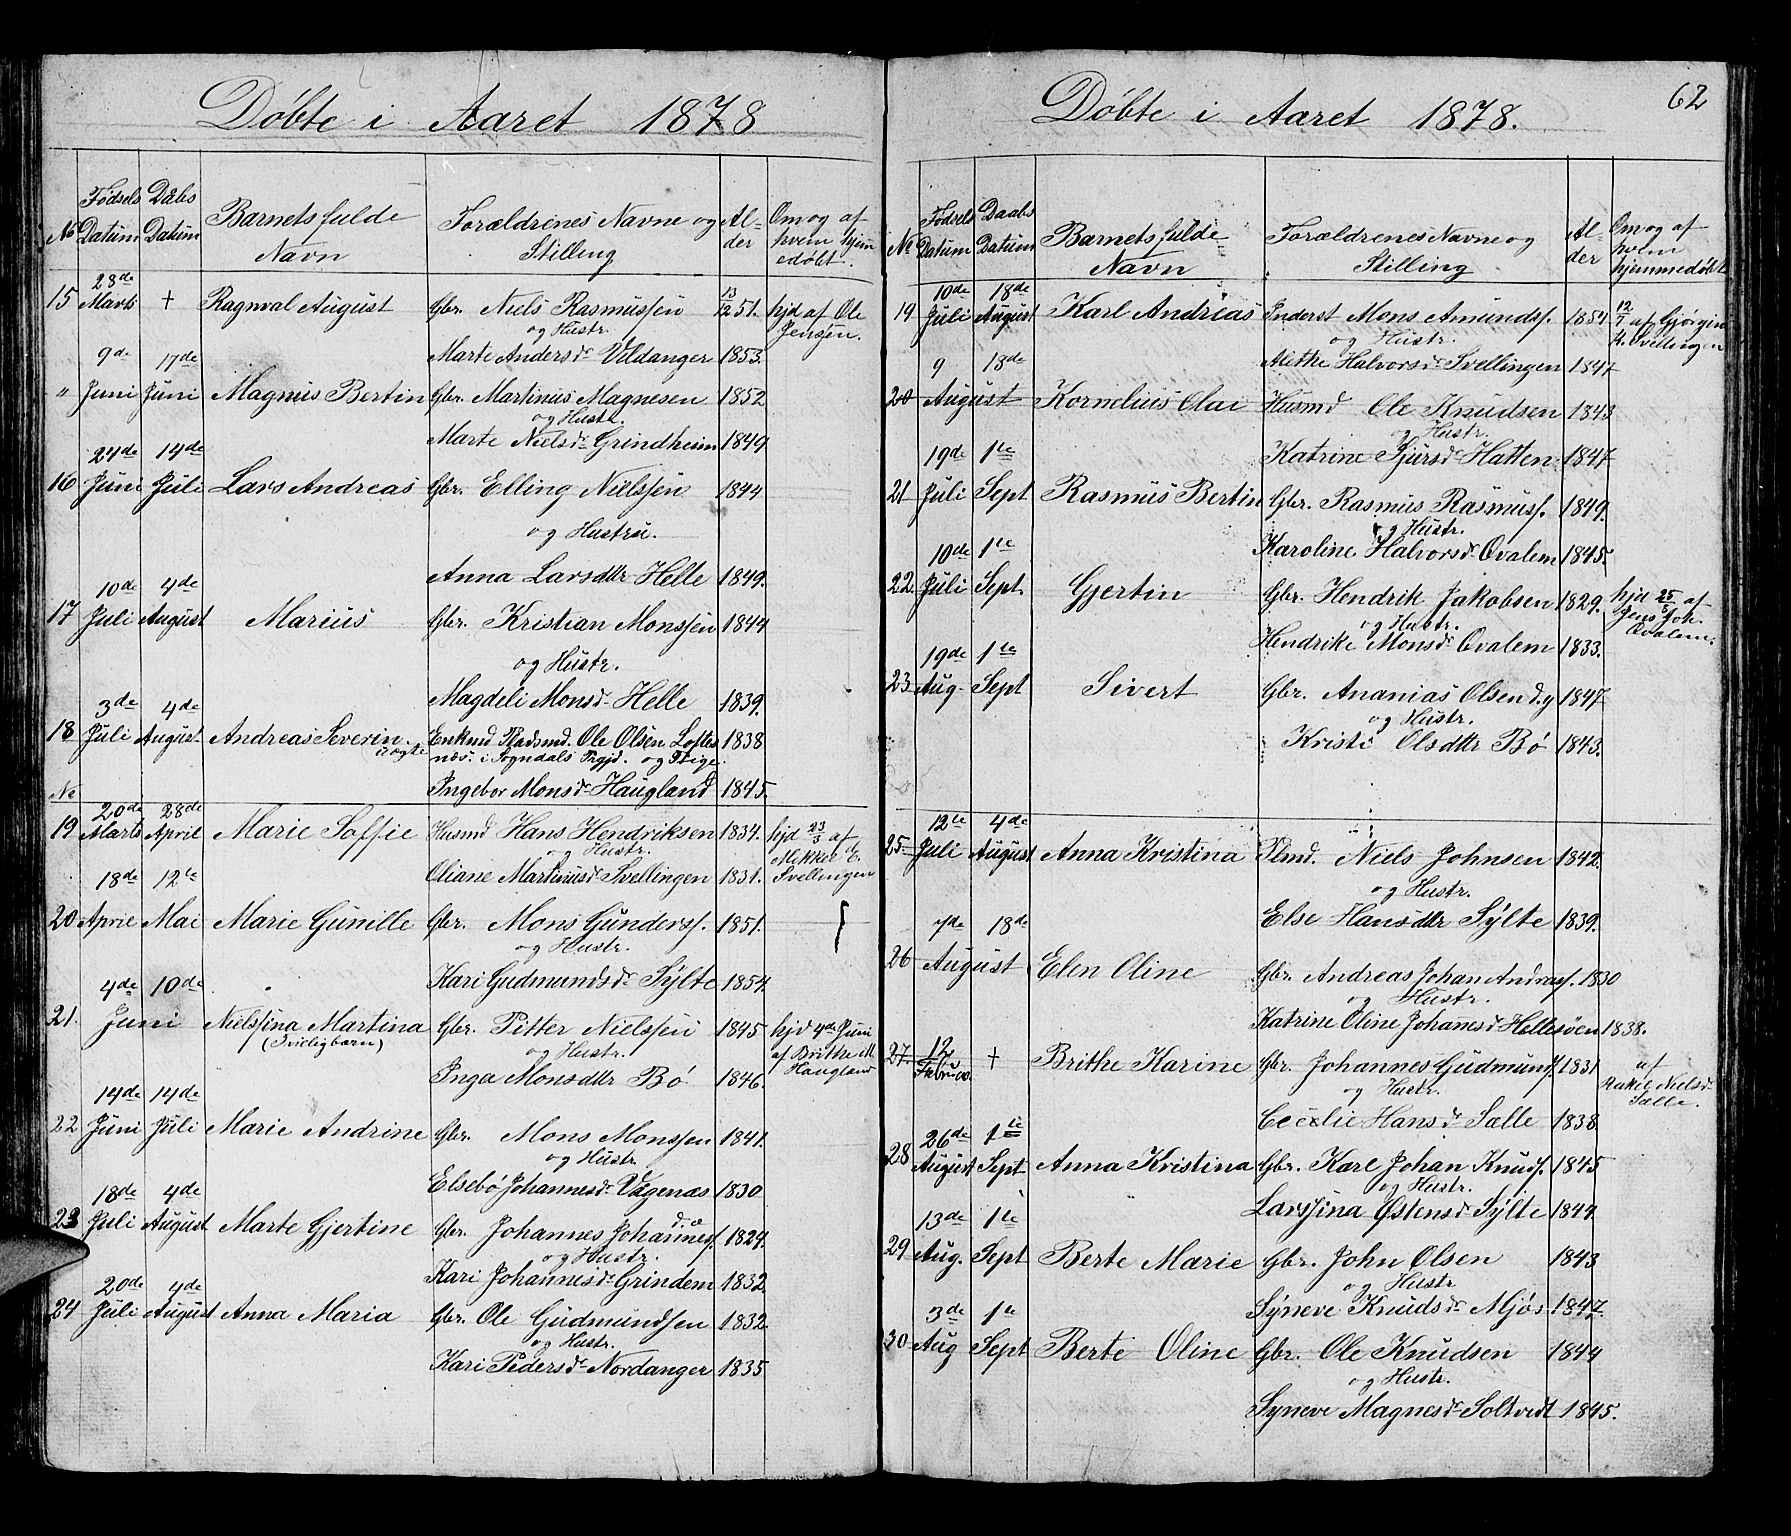 Døbte i Aaret 1878
No Fødsels Datum Dåbs Datum Barnets fulde Navn Forældrenes Navne og Stilling Alder Om og af hvem hjemedøbt.
28de
15 Marts + Ragnval August Gbr. Niels Rasmussen 13/12 51. hjd af Ole Jensen.
og Hustr.
9de 17de Marte Andersdr Vildanger 1853.
" Juni Juni Magnus Bertin Gbr. Martinus Magnesen 1852
og Hustr.
24de 14de Marte Nielsdr Grindheim 1849
16 Juni Juli Lars Andreas Gbr. Elling Nielssen 1844
og Hustru.
10de 4de Anna Larsdtr Helle 1849.
17 Juli August Marius Gbr. Kristian Monssen 1844
og Hustr.
3de 4de Magdeli Monsd. Helle 1839.
18 Juli August Andreas Severin uægte Enkmd Pladsmd. Ole Olsen Loftes 1838
næs. i Sogndals Prgjd. og Pige.
No Ingebor Monsdr Haugland 1845.
20de 28de
19 Marts April Marie Soffie Husmd Hans Hendriksen 1834. hjd 23/3 af
og Hustr. Mekkel E.
18de 12te Oliane Martinusdr Svellingen 1831. Svellingen
20 April Mai Marie Gunille Gbr. Mons Gunderss. 1851.
og Hustr.
4de 10de Kari Gudmundsdr Sylte 1854.
21. Juni Nielssina Martina Gbr. Pitter Nielssen 1845 hjd 4de Juni
(Tvilligbarn) og Hustr. af Brithe M.
Inga Monsdtr Bø 1846 Haugland
14de 14de
22 Juni Juli Marie Andrine Gbr. Mons Monssen 1841.
og Hustr.
18de 4de Elsebø Johannesdr Vågenæs 1830
23 Juli August Marte Gjertine Gbr. Johannes Johanness. d.æ 1829.
og Hustr.
20de 4de Kari Johannesdr Grindem 1832.
24 Juli August Anna Maria Gbr. Ole Gudmundsen 1832
og Hustr.
Kari Pedersdr Nordanger 1835
62
Døbte i Aaret 1878.
No Fødsels Datum Daabs Datum Barnets fulde Navn Forældrenes Navne og Stilling Alder Om og af hvem hjemmedøbt
10de 18de
19 Juli August Karl Andreas Inderst Mons Amundss. 1854 12/7 af Gjørgin
og Hustr. Svellingen
9 18de Methe Halvorsdr Svellingen 1847
20 August Kornelius Olai Husmd Ole Knudsen 1843
og Hustr.
19de 1te Katrine Sjursdr Hatten 1847
21 Juli Sept Rasmus Bertin Gbr. Rasmus Rasmuss. 1849.
og Hustr.
10de 1te Karoline Halvorsdr Qvalem 1845.
22 Juli Sept. Gjertin Gbr. Hendrik Jakobsen 1829. hjd 25/8 af
og Hustr. Jens Joh.
19de 1te Hendrike Monsdr Qvalem 1833. Qvalem.
23 Aug. Sept Sivert Gbr. Ananias Olsen d.y 1847
og Hustr.
Kristi Olsdtr Bø 1843.
12te 4de
25 Juli August Anna Kristina Plmd. Niels Johnsen 1842.
og Hustr.
7de 18de Else Hansdtr Sylte 1839.
26 August Elen Oline Gbr. Andreas Johan Andreass. 1830
og Hustr.
Katrine Oline Johanesdr Hellesøen 1838.
27 12 Februar + Brithe Karine Gbr. Johannes Gudmuns. 1831 af
og Hustr. Rakel Nielsdr
26de 1te Cecelie Hansdr Salle 1838 Salle.
28 August Sept Anna Kristina Gbr. Karl Johan Knuds. 1845
og Hustr.
13de 1te Larssina Østensdr Sylte 1844
29 Aug. Sept Berte Marie Gbr. John Olsen 1843
og Hustr
3de 1te Syneve Knudsdr Mjøs 1847.
30 Aug Sept Berte Oline Gbr. Ole Knudsen 1844
og Hustr.
Syneve Magnesdr Soltvedt 1845.